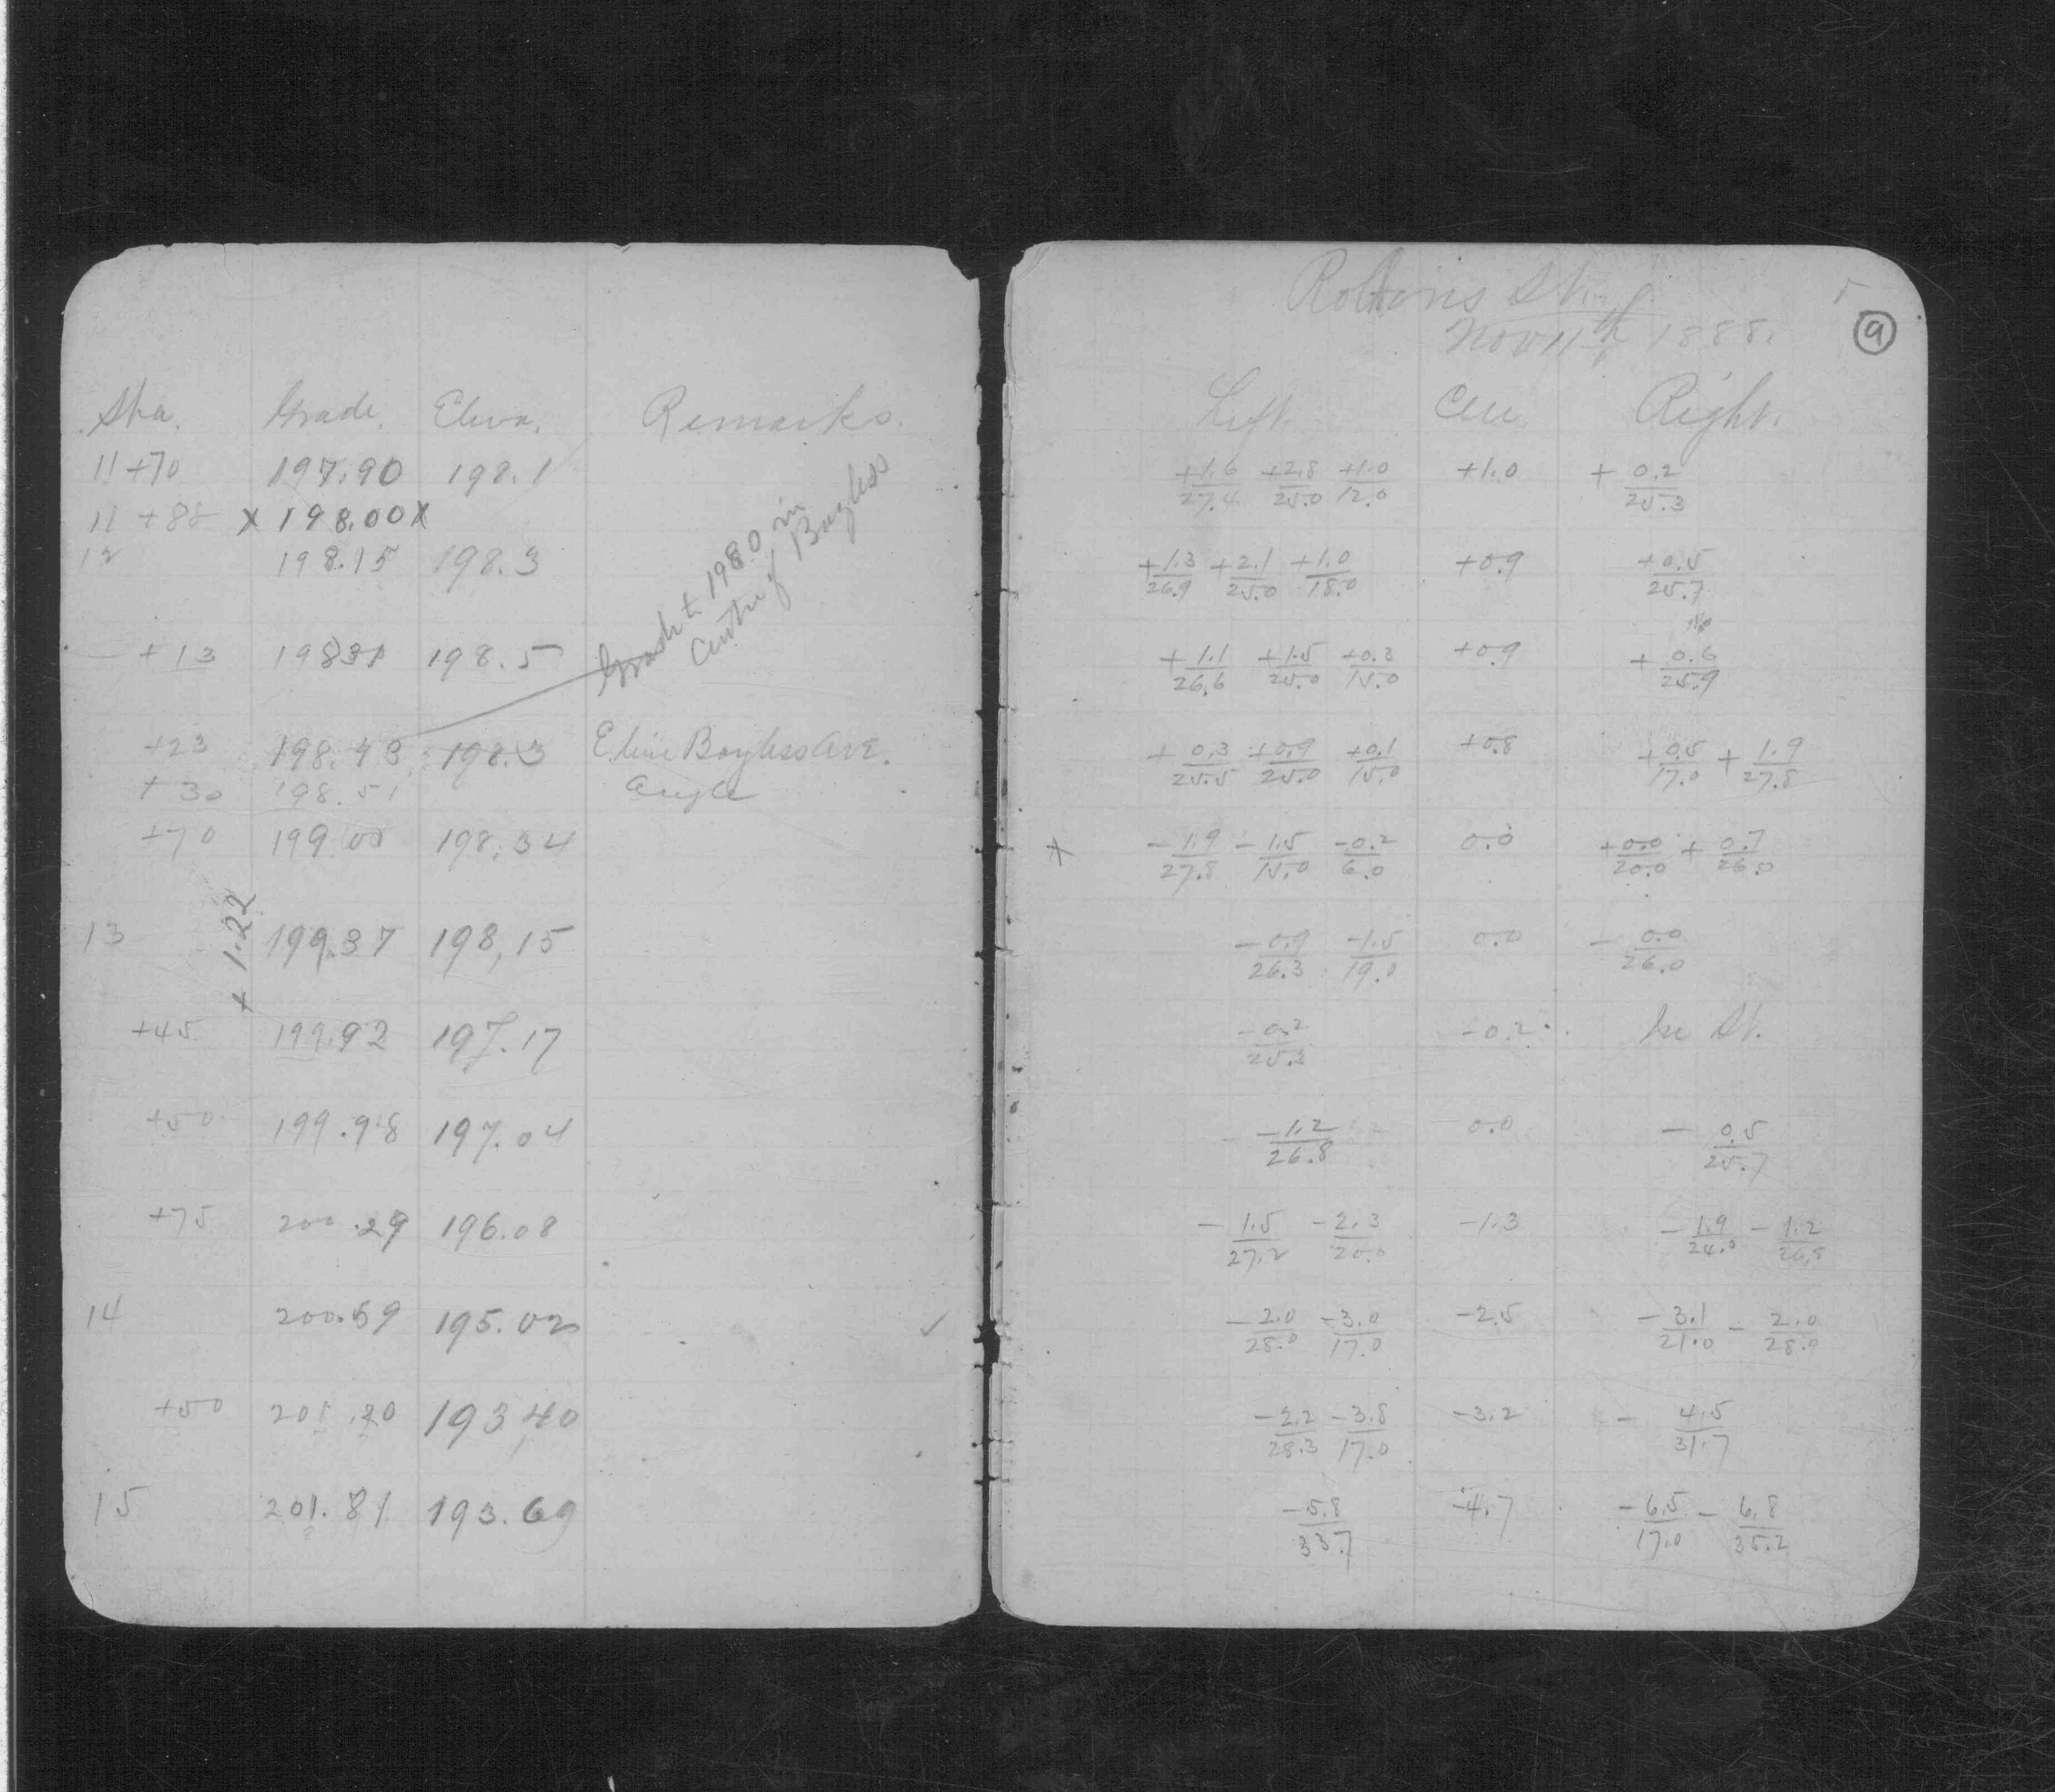 Sta. Grade. Eleva. Remarks.
11+70 197.90 198.1
11+88 x 198.00 x
12 198.15 198.3
+13 198.31 198.5
Grade to 198.0 in
Centre of Bayless
+23 198.43 198.3 E line Bayless Ave.
+30 198.51 Angle
+70 199.00 198.34
+ 1.22
13 199.37 198.15
+45 199.92 197.17
+50 199.98 197.04
+75 200.29 196.08
14 200.59 195.02
+50 201.20 193.40
15 201.81 193.69
St.
Nov 11th 1888.
9
Left. Cen. Right.
+1.6/27.4 +2.8/25.0 +1.0/12.0 +1.0 +0.2/25.3
+1.3/26.9 +2.1/25.0 +1.0/18.0 +0.9 +0.5/25.7
+1.1/26.6 +1.5/25.0 +0.3/15.0 +0.9 +0.6/25.9
+0.3/25.5 +0.9/25.0 +0.1/15.0 +0.8 +0.5/17.0 +1.9/27.8
x -1.9/27.8 -1.5/15.0 -0.2/6.0 0.0 +0.0/20.0 +0.7/26.0
-0.9/26.3 -1.5/19.0 0.0 -0.0/26.0
-0.2/25.3 -0.2 In St.
-1.2/26.8 0.0 -0.5/25.7
-1.5/27.2 -2.3/20.0 -1.3 -1.9/24.0 -1.2/26.8
-2.0/28.0 -3.0/17.0 -2.5 -3.1/21.0 -2.0/28.0
-2.2/28.3 -3.8/17.0 -3.2 -4.5/31.7
-5.8/33.7 -4.7 -6.5/17.0 -6.8/35.2